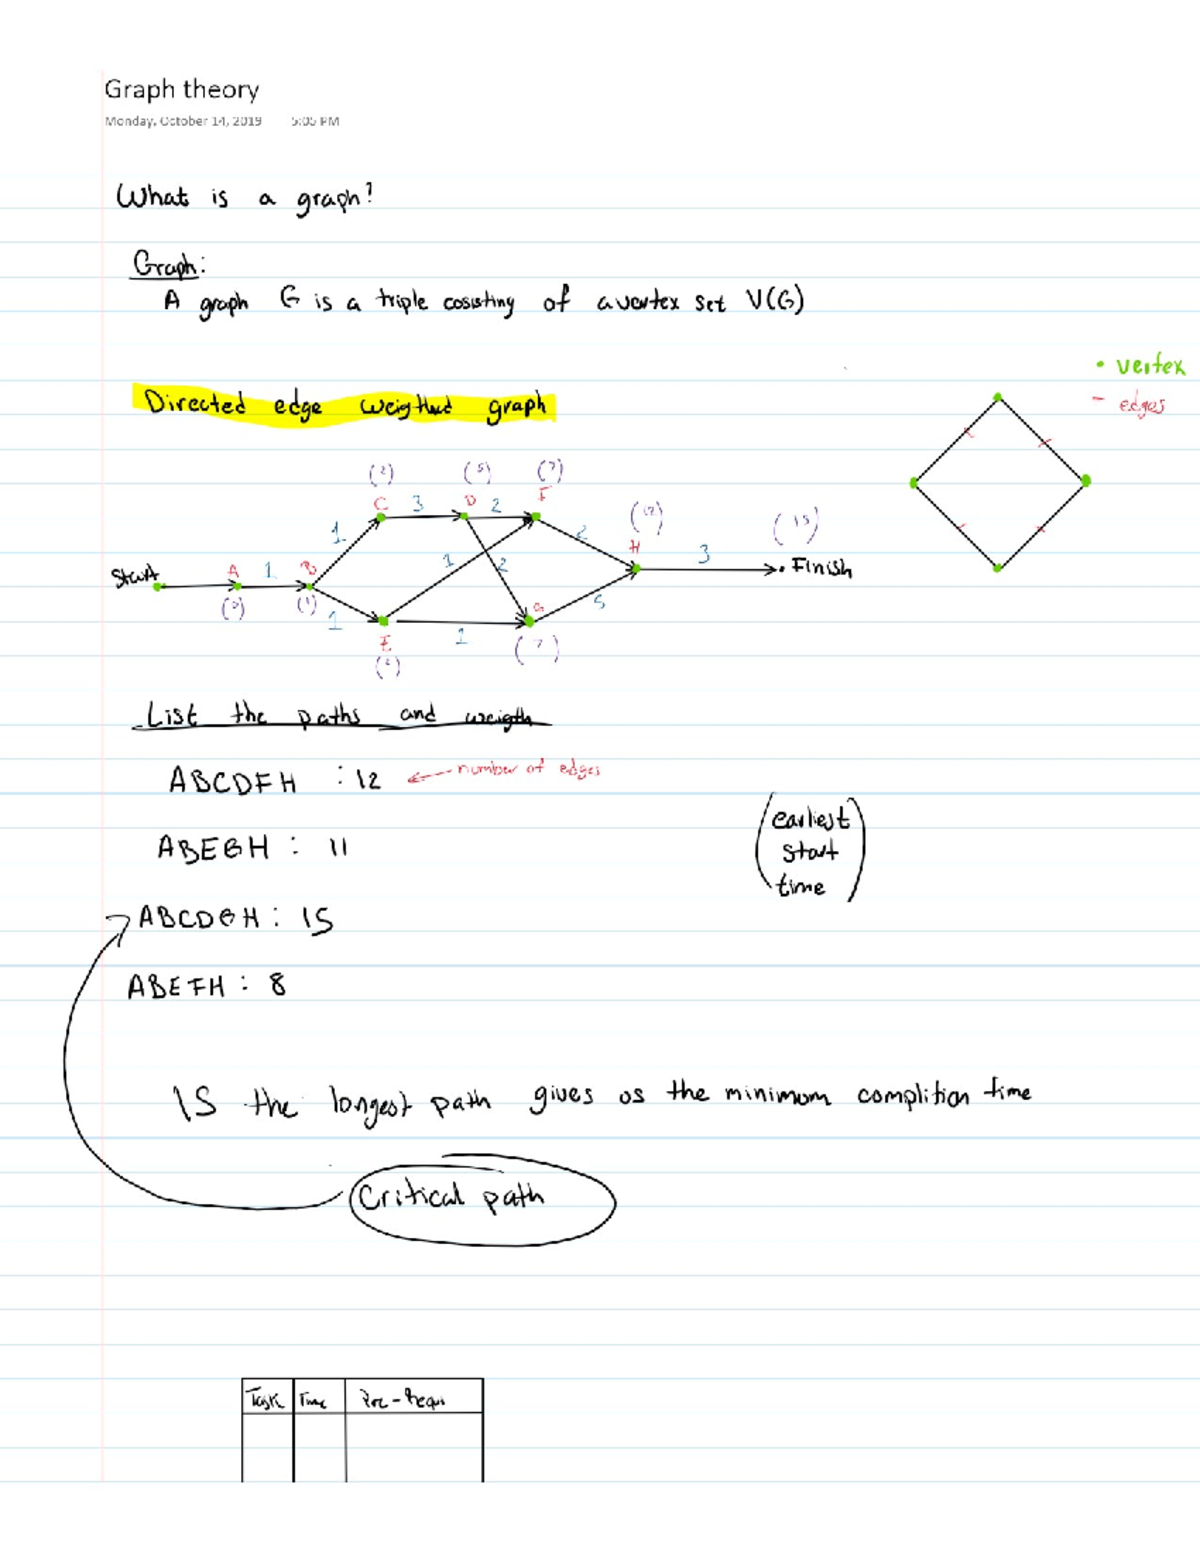 Graph theory
Monday, October 14, 2019 5:05 PM
What is a graph?
Graph:
A graph G is a triple cosisting of a vertex set V(G)
• vertex
- edges
Directed edge weighted graph
(2) (5) (7)
C 3 D 2 F
(12) (15)
1 2 H
Start A 1 B 1 2 3 Finish
(0) (1) 1 G 5
E 1 (7)
(2)
List the paths and weigth
ABCDFH : 12 ← number of edges
ABEGH : 11
(earliest
start
time)
ABCDGH : 15
ABEFH : 8
15 the longest path gives us the minimum complition time
Critical path
Task Time Pre-Requi